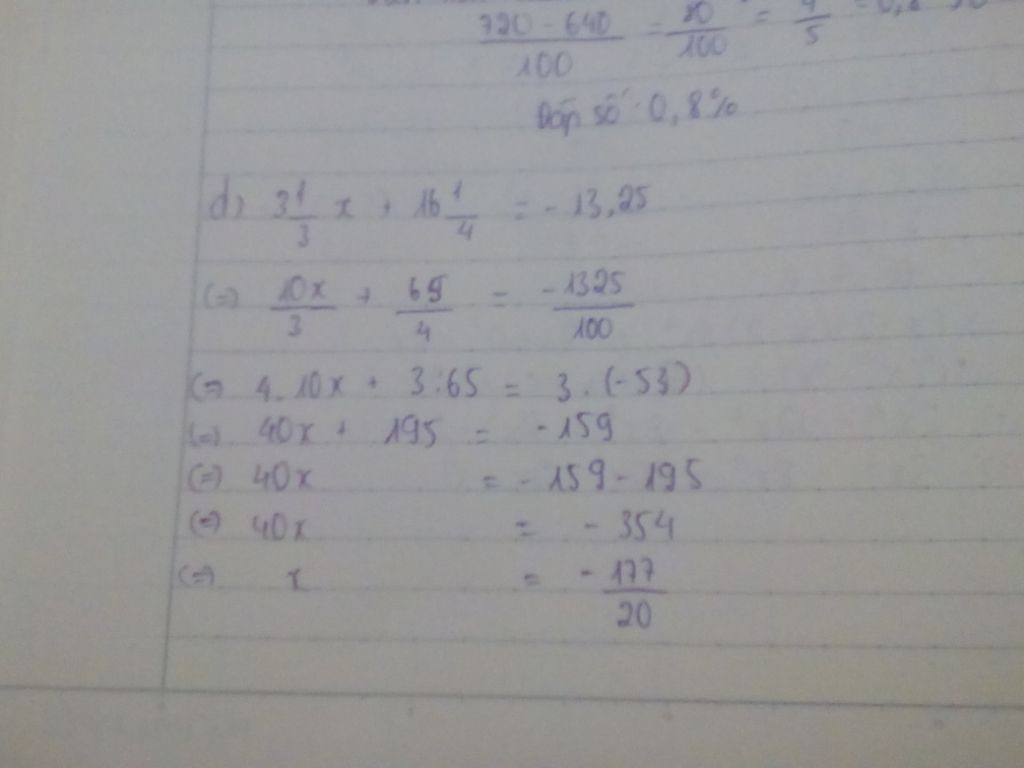 720 - 640 / 100 = 80 / 100 = 4 / 5 = 0,8
Đáp số: 0,8%
d) 3 1/3 x + 16 1/4 = - 13,25
(=) 10x/3 + 65/4 = -1325/100
(=) 4.10x + 3.65 = 3.(-53)
(=) 40x + 195 = -159
(=) 40x = - 159 - 195
(=) 40x = - 354
(=) x = - 177/20